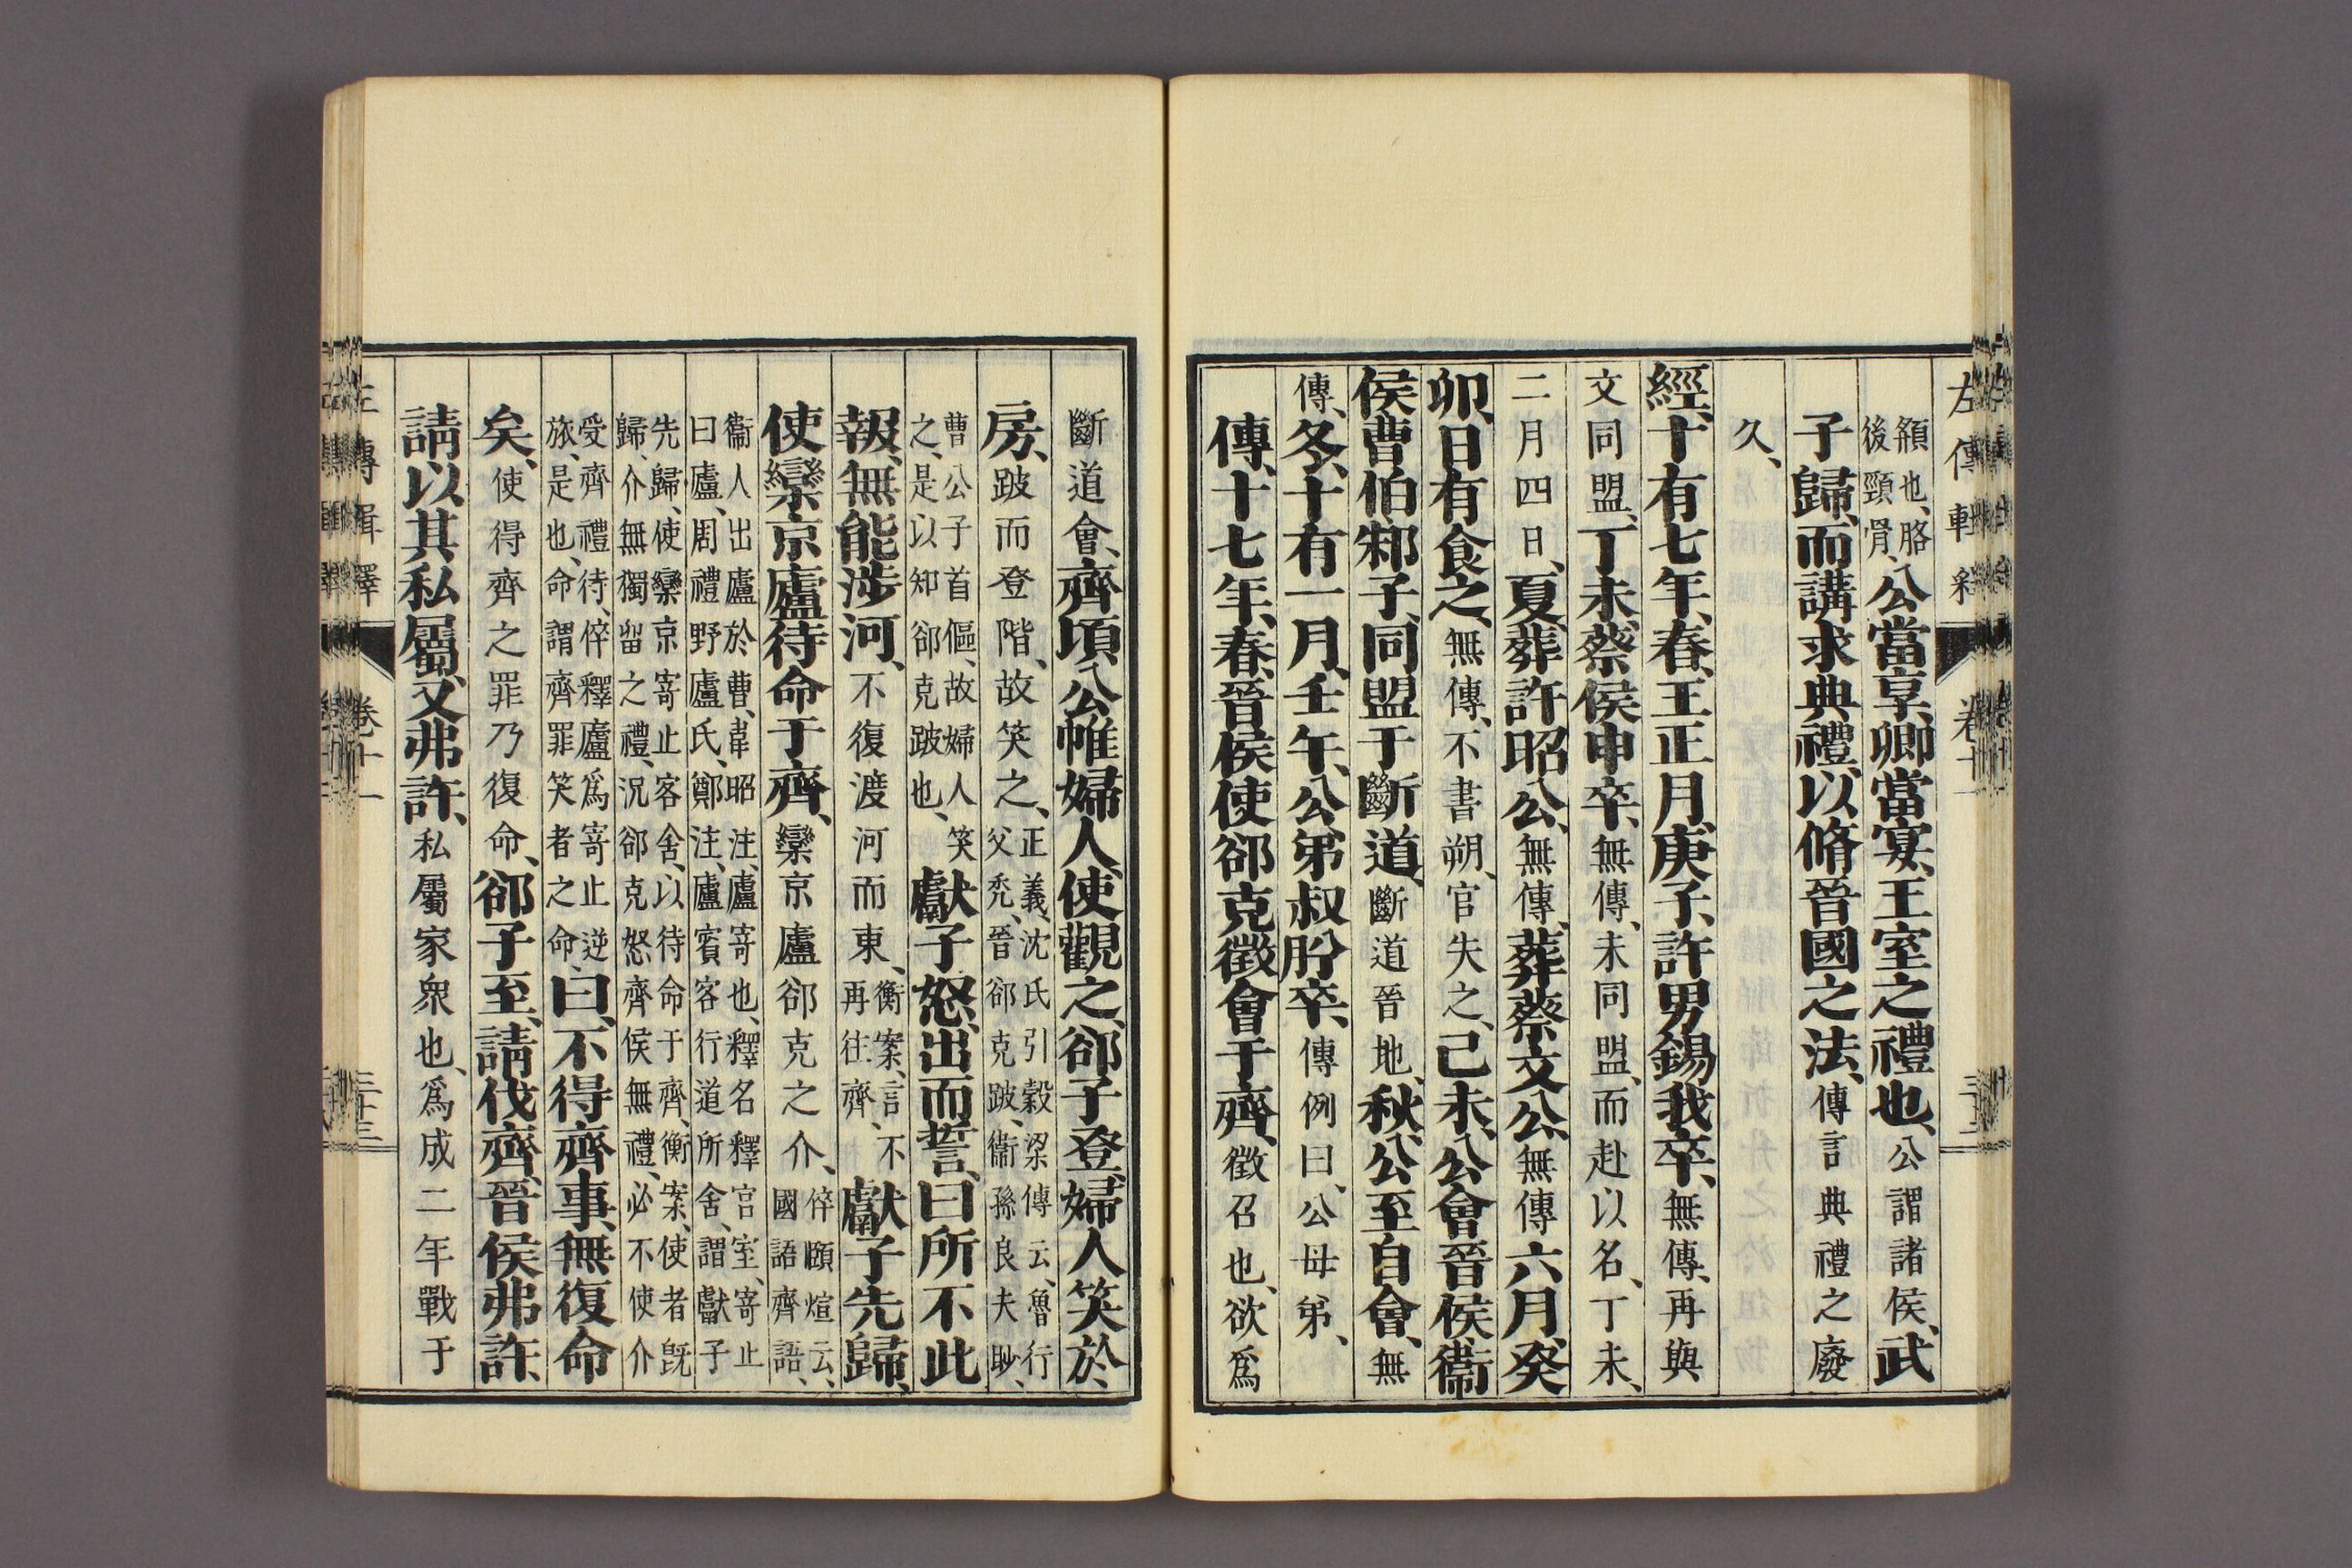 左傳輯釋 卷十一
頟也、胳後頸骨、公當享、卿當宴、王室之禮也、公謂諸侯、武
子歸、而講求典禮、以脩晉國之法、傳言典禮之廢
久、
經、十有七年、春、王正月、庚子、許男錫我卒、無傳、再與
文同盟、丁未、蔡侯申卒、無傳、未同盟、而赴以名、丁未、
二月四日、夏、葬許昭公、無傳、葬蔡文公、無傳六月、癸
卯、日有食之、無傳、不書朔、官失之、己未、公會晉侯、衞
侯曹伯邾子、同盟于斷道、斷道晉地、秋、公至自會、無
傳、冬、十有一月、壬午、公弟叔肸卒、傳例曰、公母弟、
傳、十七年、春、晉侯使郤克徵會于齊、徵召也、欲爲
斷道會、齊頃公帷婦人、使觀之、郤子登、婦人笑於、
房、跛而登階、故笑之、正義、沈氏引穀梁傳云、魯行父禿、晉郤克跛、衞孫良夫眇、
曹公子首傴、故婦人笑之、是以知郤克跛也、獻子怒、出而誓、曰所不此
報、無能涉河、不復渡河而東、衡案、言不再往齊、獻子先歸、
使欒京廬待命于齊、欒京廬郤克之介、倅頤煊云、國語齊語、
衞人出廬於曹、韋昭注、廬寄也、釋名釋宮室、寄止曰廬、周禮野廬氏、鄭注、廬賓客行道所舍、謂獻子
先歸、使欒京寄止客舍、以待命于齊、衡案、使者既歸、介無獨留之禮、況郤克怒齊侯無禮、必不使介
受齊禮待、倅釋廬爲寄止逆旅、是也、命謂齊罪笑者之命、曰、不得齊事、無復命
矣、使得齊之罪乃復命、郤子至、請伐齊、晉侯弗許、
請以其私屬、又弗許、私屬家衆也、爲成二年戰于
傳輯釋 卷十一 三十三